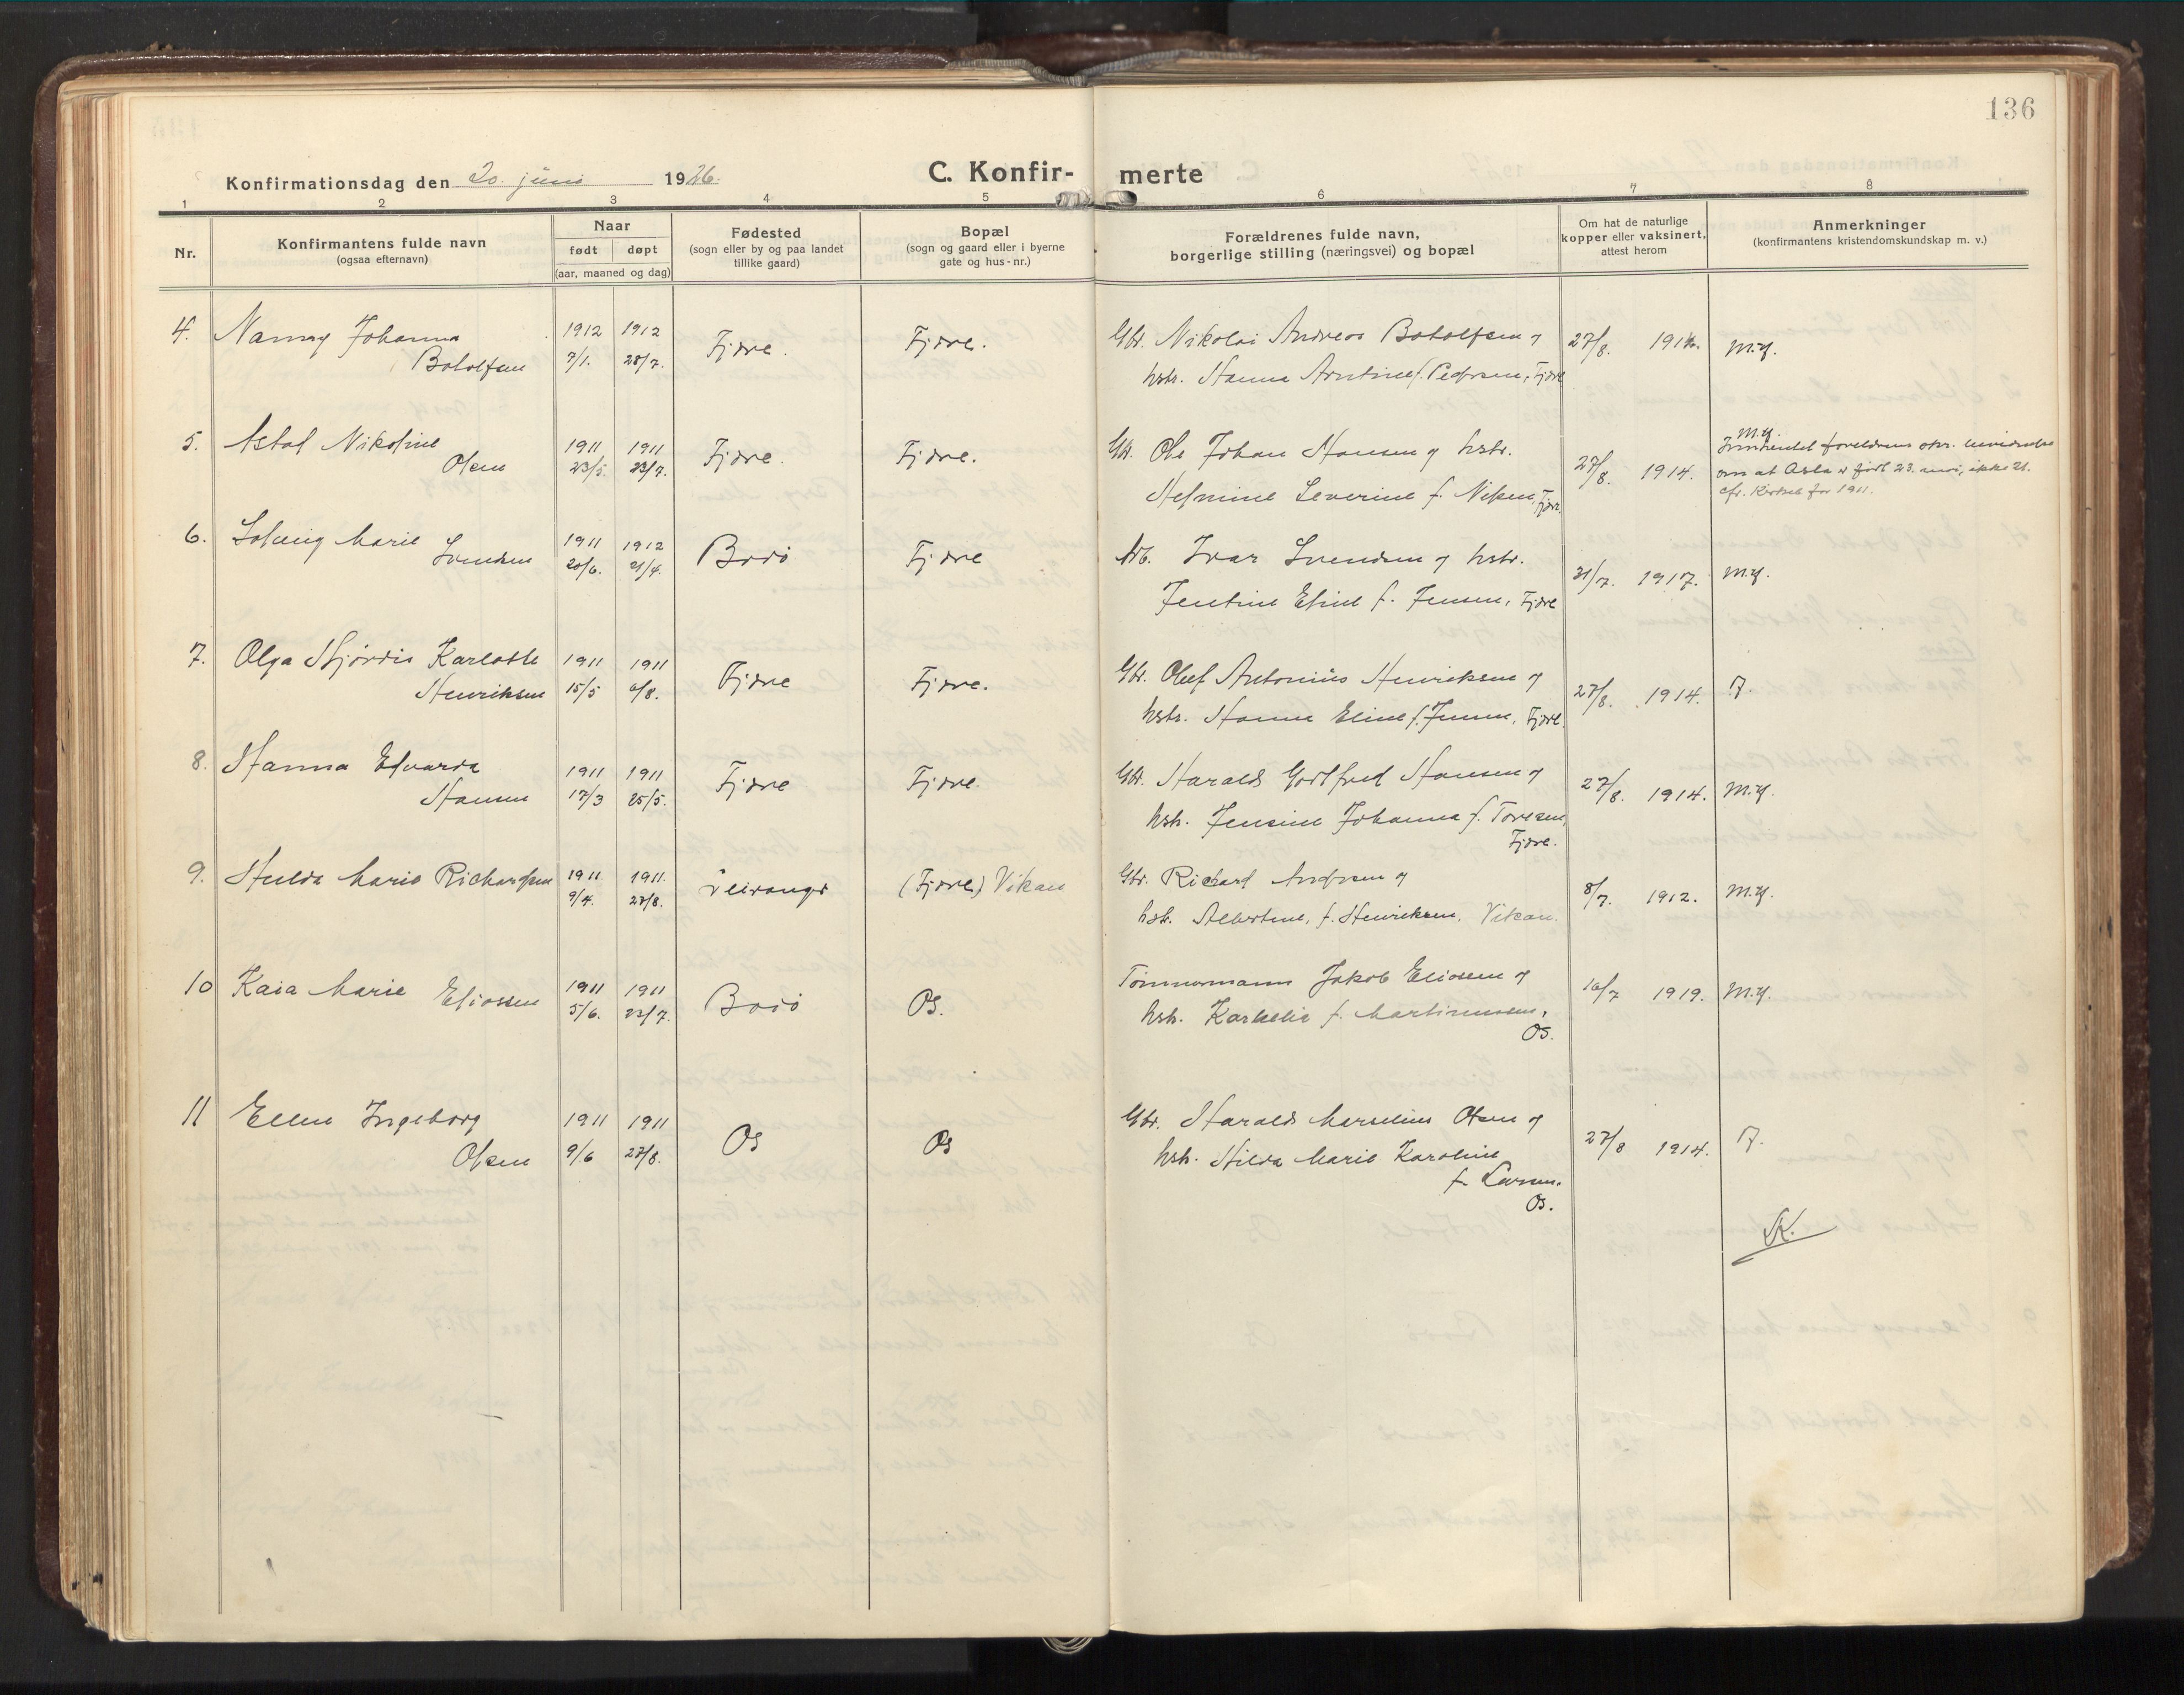 136
Konfirmationsdag den 20. juni 1926.
C. Konfir-merte
1 2 3 4 5 6 7 8
Nr.
Konfirmantens fulde navn
(ogsaa efternavn)
Naar
født døpt
(aar, maaned og dag)
Fødested
(sogn eller by og paa landet
tillike gaard)
Bopæl
(sogn og gaard eller i byerne
gate og hus-nr.)
Forældrenes fulde navn,
borgerlige stilling (næringsvei) og bopæl
Om hat de naturlige
kopper eller vaksinert,
attest herom
Anmerkninger
(konfirmantens kristendomskundskap m. v.)
4. Nanny Johanna 1912 1912 Fjære. Fjære. Gbr. Nikolai Andreas Botolfsen og 27/8. 1914. m.g.
Botolfsen 7/1. 28/7. hstr. Hanna Arntine f. Pedersen, Fjære
5. Aslal Nikoline 1911 1911 Fjære. Fjære. Gbr. Ole Johan Hansen og hstr. 27/8. 1914. m.g.
Olsen 23/5. 23/7. Helmine Severine f. Fjære.
foreldrenes
om at Asla er født 23. mai, ikke 21.
cfr. for 1911.
6. Solveig Marie 1911 1912 Bodø Fjære Arb. Ivar Svendsen og hstr. 21/7. 1917. m.g.
Svendsen 20/6. 21/4. Jentine Eline f. Jensen, Fjære
7. Olga Hjørdis Karlotte 1911 1911 Fjære Fjære. Gbr. Oluf Antonius Henriksen og 27/8. 1914.
Henriksen 15/5 6/8. hstr. Hanna Eline f. Jensen, Fjære.
8. Hanna Edvarda 1911 1911 Fjære Fjære. Gbr. Harald Godtfred Hansen og 27/8. 1914. m.g.
Hansen 17/3 25/5. hstr. Jensine Johanna f. Toresen,
Fjære.
9. Hulda Marie Richardsen 1911 1911. (Fjære) Vikan Gbr. Richard Andersen og 8/7. 1912. m.g.
9/4. 27/8. hstr. Albertine, f. Henriksen, Vikan.
10 Kaia Marie Eliassen 1911 1911 Bodø Os. Tømmermann Jakob Eliassen og 16/7 1919. m.g.
5/6. 23/7. hstr. f. Martinussen,
Os.
11 Ellen Ingeborg 1911 1911 Os Os Gbr. Harald Marselius Olsen og 27/8 1914.
Olsen 9/6 27/8. hstr. Hilda Marie Karoline
f. Larsen.
Os.
K.